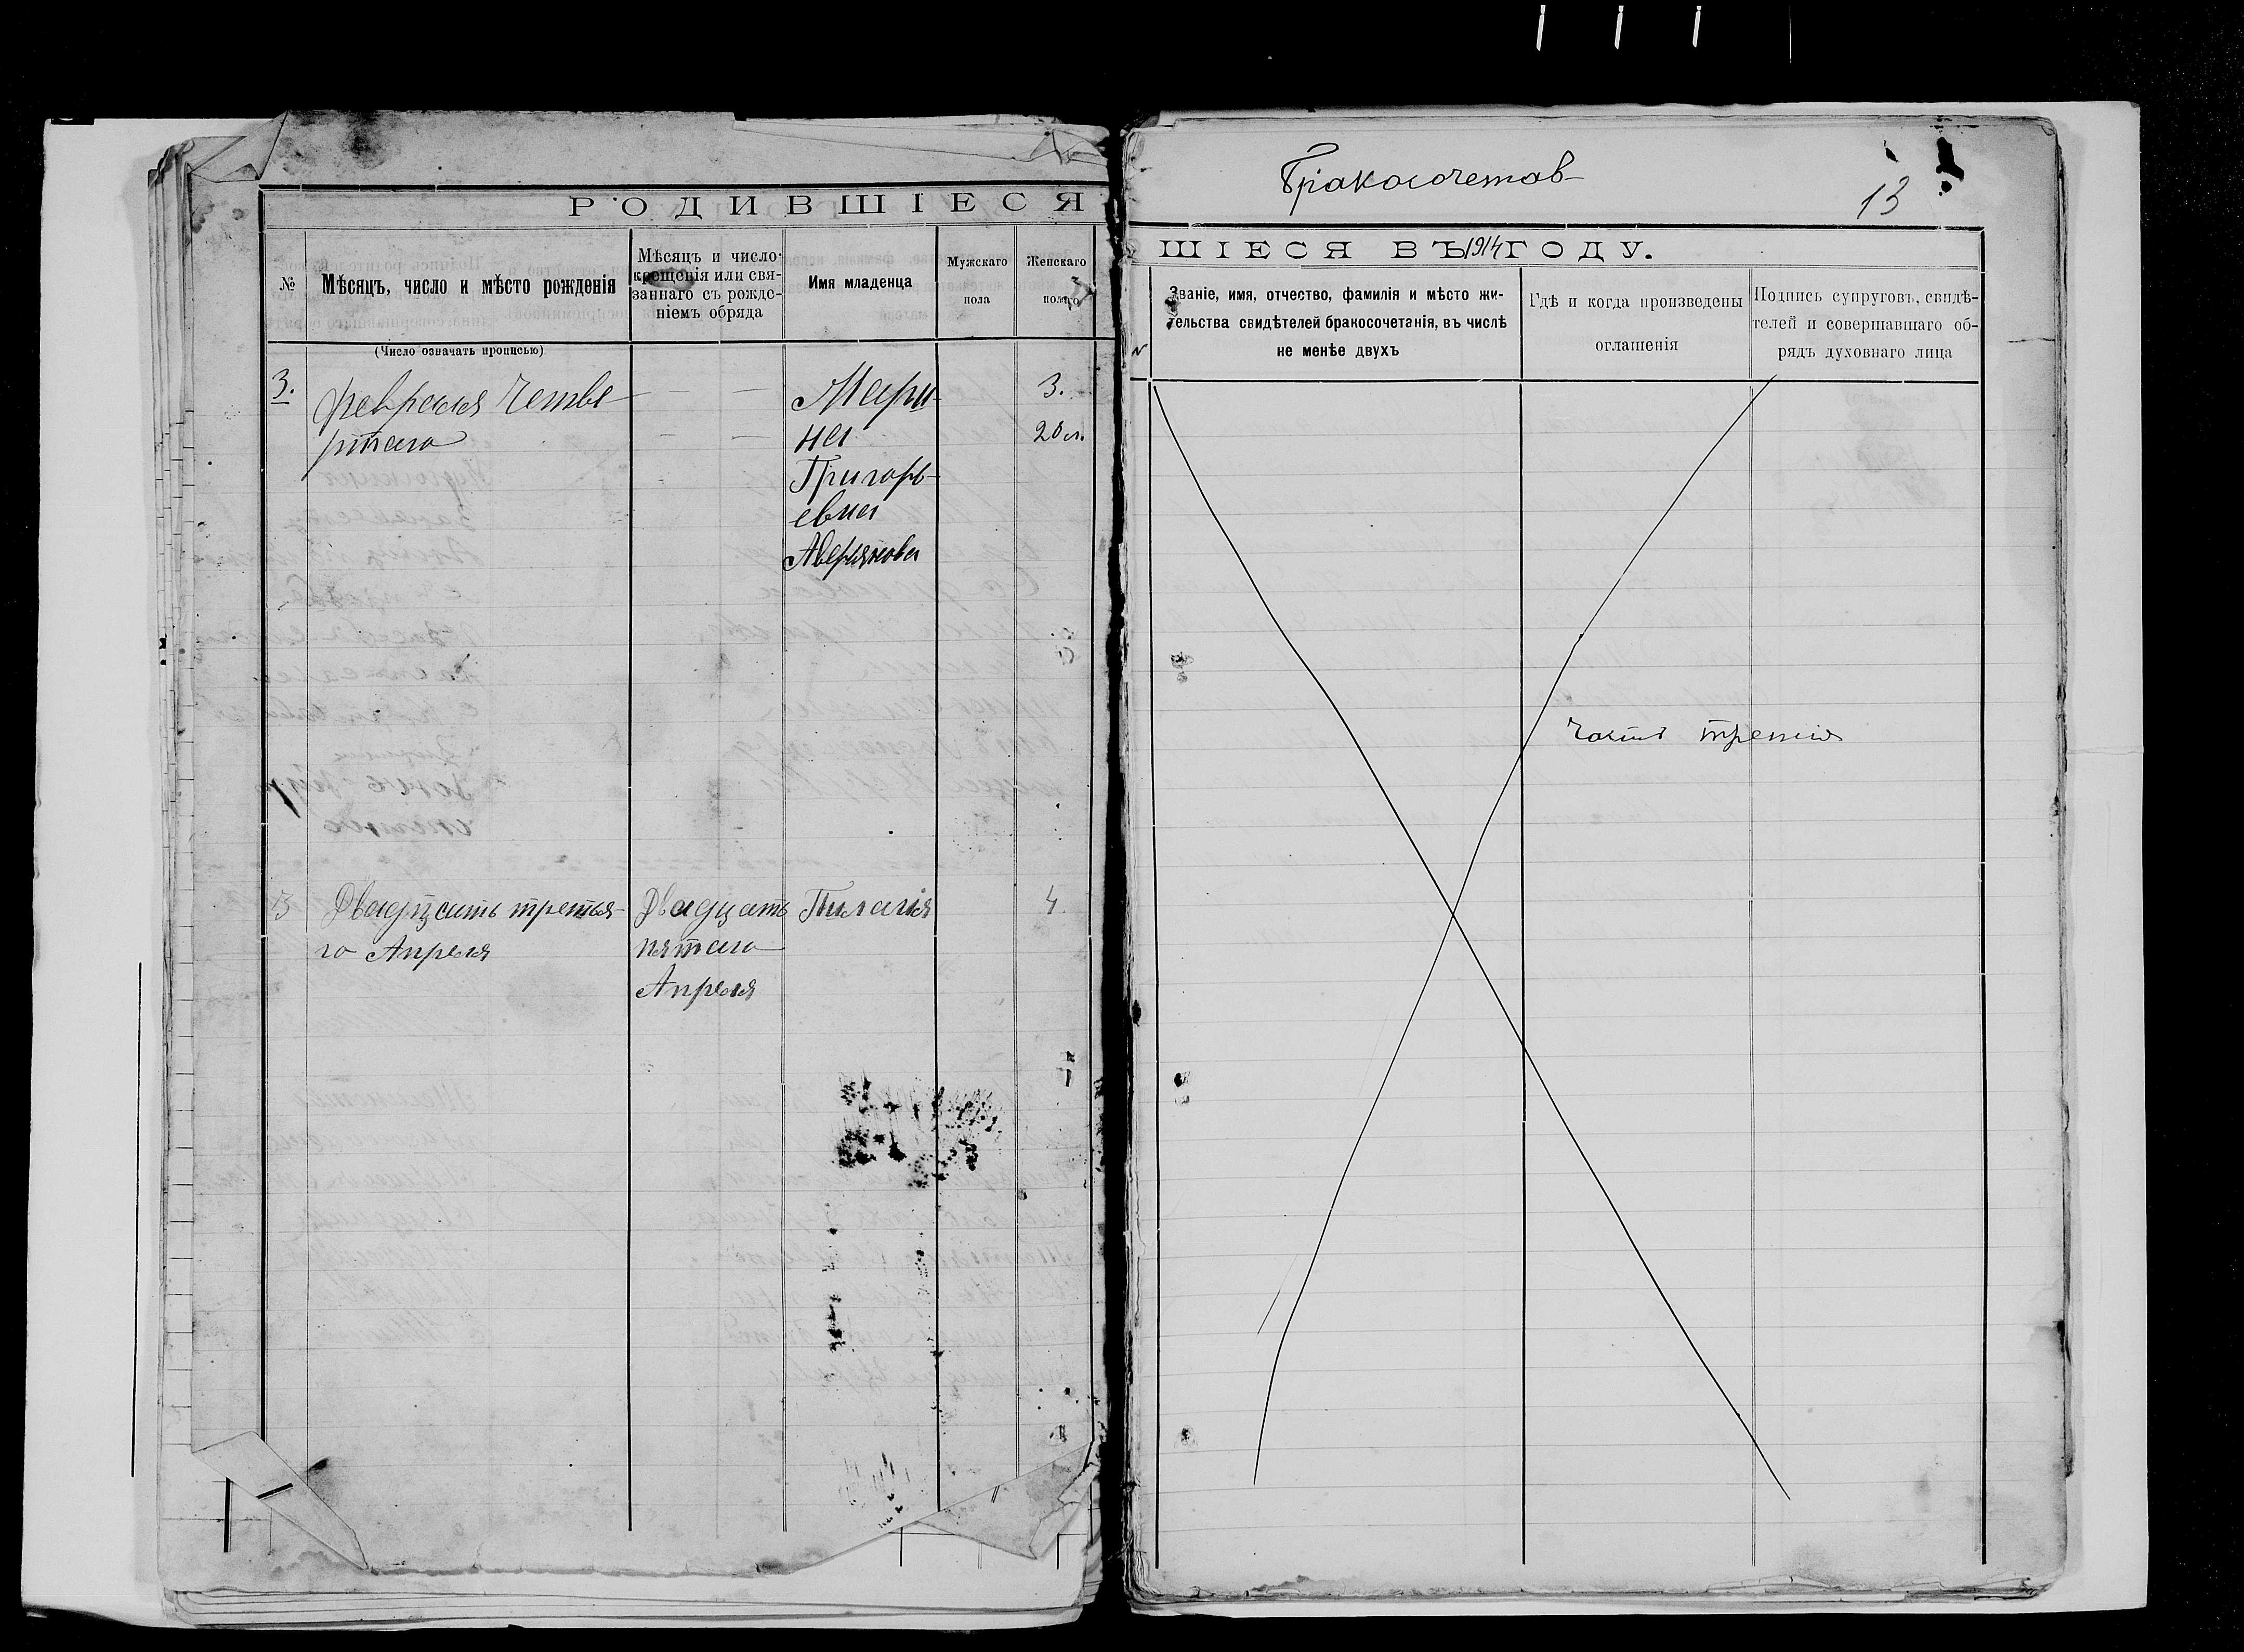 РОДИВШІЕСЯ
№
Мѣсяцъ, число и мѣсто рожденія
(Число означать прописью)
Мѣсяцъ и число
крещенія или свя-
заннаго съ рожде-
ніемъ обряда
Имя младенца
Мужскаго
пола
Женскаго
пола
3.
февраля Четве
ртаго
— —
— —
Мари
на
Григорь-
евна
Аверянова
3.
Двадцать третья-
го Апреля
Двадцать
пятаго
Апреля
Пилагія
4
Бракосочетав-
13
ШІЕСЯ ВЪ 1914 ГОДУ.
Званіе, имя, отчество, фамилія и мѣсто жи-
тельства свидѣтелей бракосочетанія, въ числѣ
не менѣе двухъ
Гдѣ и когда произведены
оглашенія
Подпись супруговъ, свидѣ-
телей и совершавшаго об-
рядъ духовнаго лица
часть третия